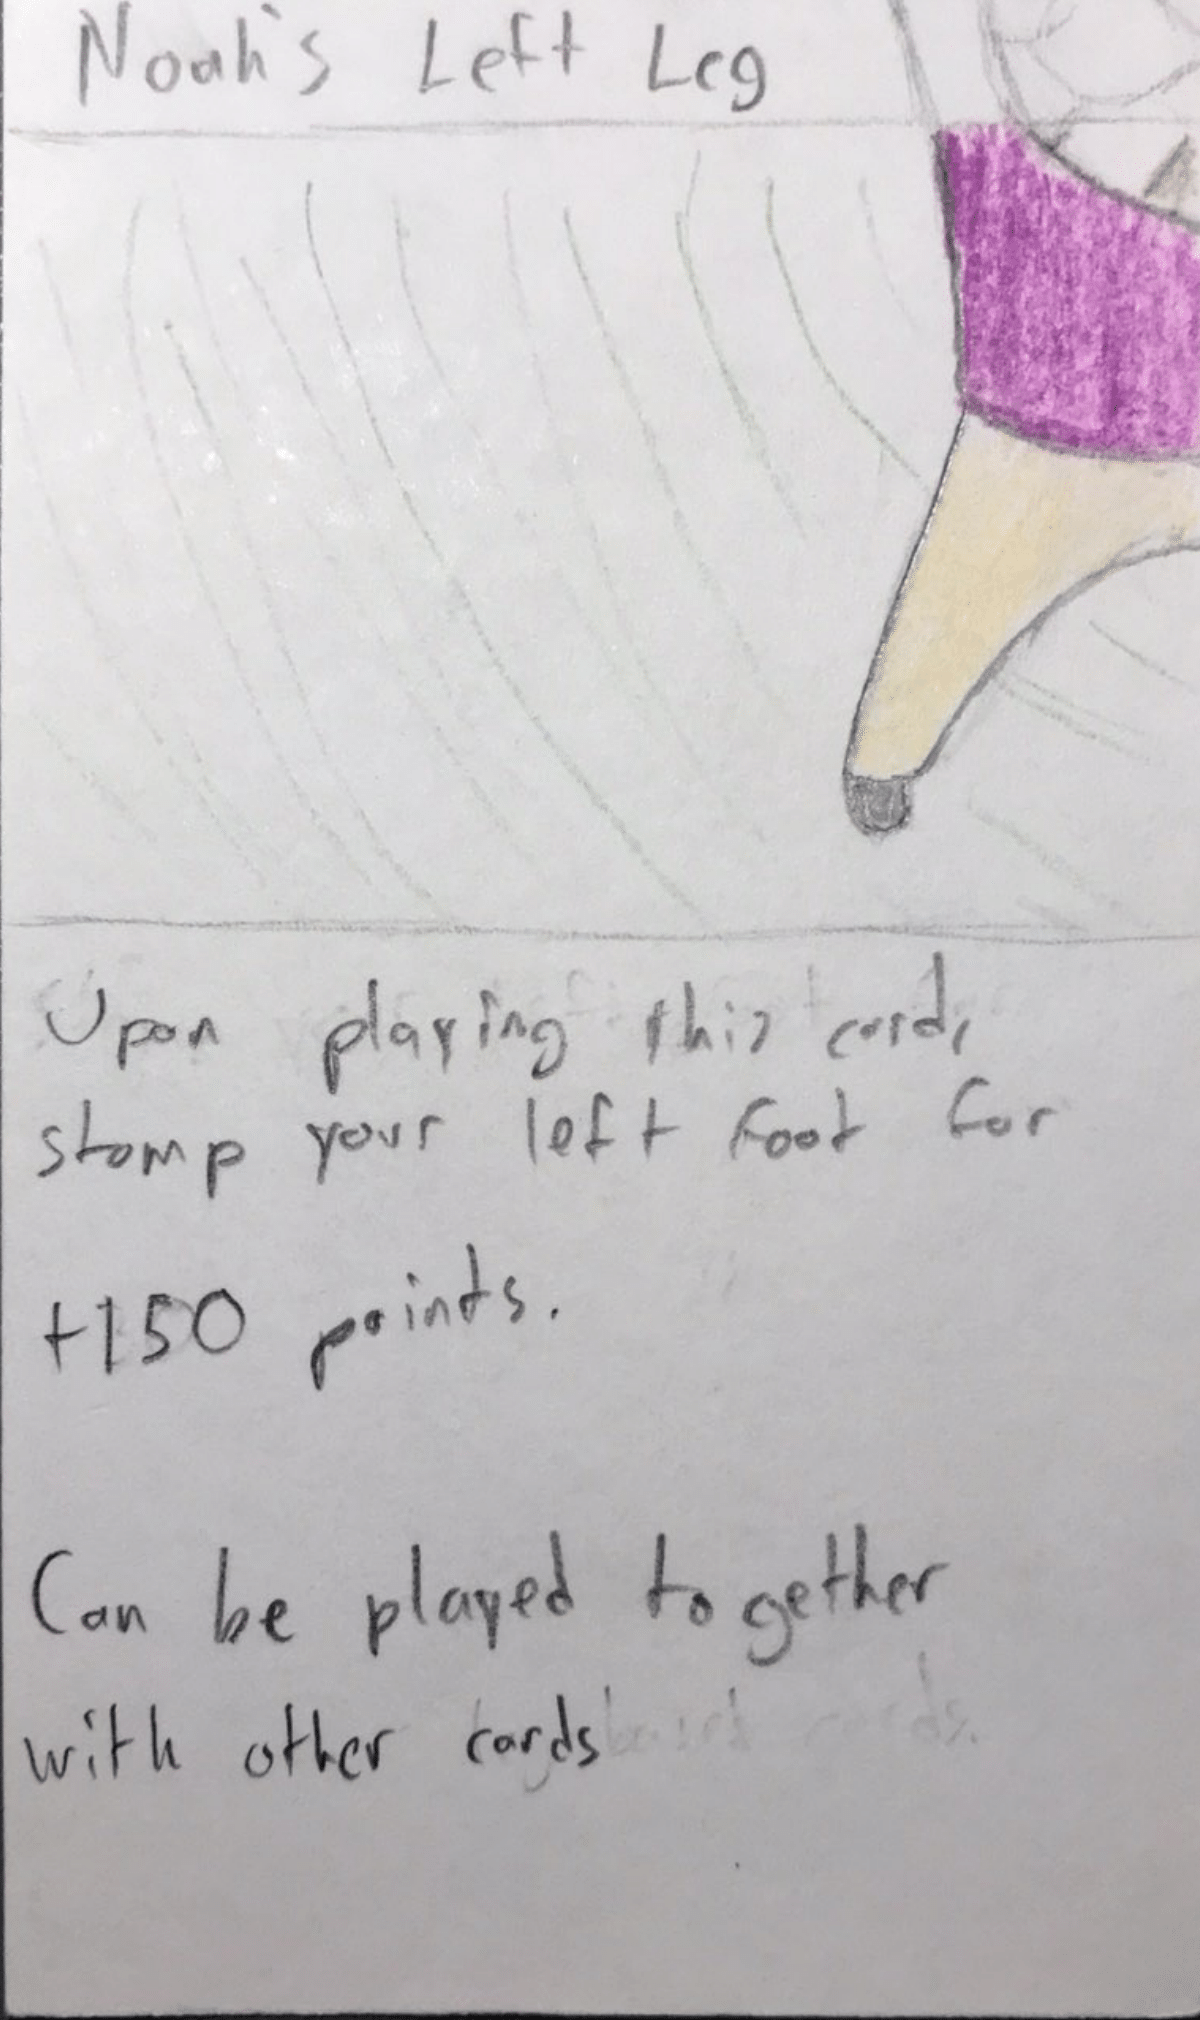 Noah's Left Leg
Upon playing this card,
stomp your left foot for
+150 points.
Can be played together
with other cards
cards.